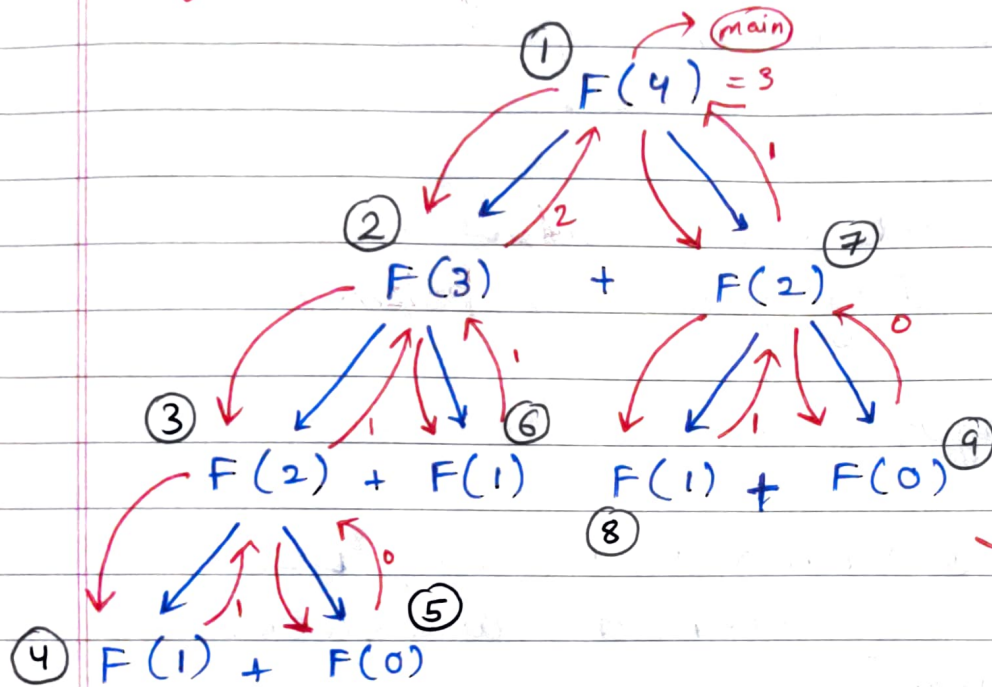 main
① F(4) = 3
2 1
② ⑦
F(3) + F(2)
1 1 1 0
③ ⑥ ⑨
F(2) + F(1) F(1) + F(0)
⑧
1 0
⑤
④ F(1) + F(0)